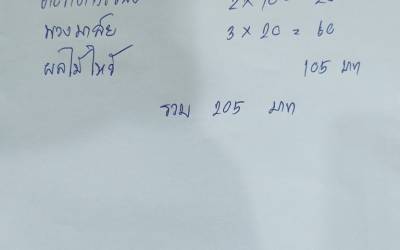 2 x 10 = 20
พวงมาลัย 3 x 20 = 60
ผลไม้ไหว้ 105 บาท
รวม 205 บาท